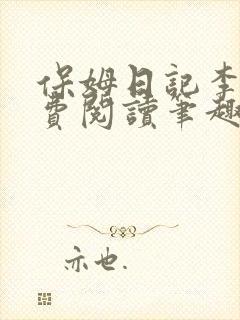 保姆日記李
費閱讀筆趣
亦也.